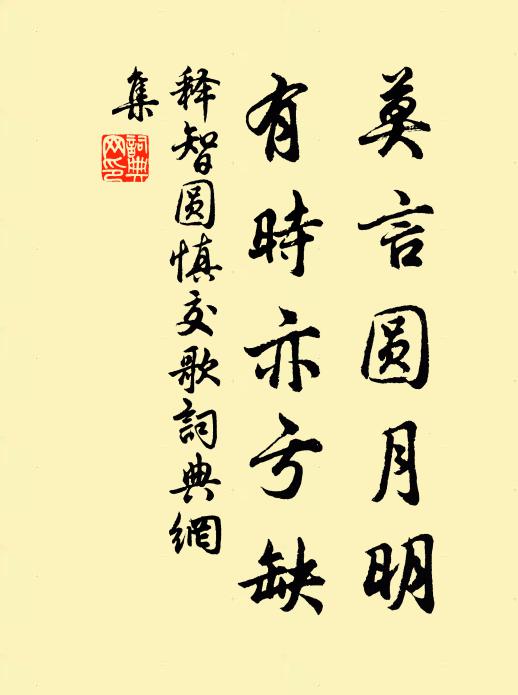 莫言圆月明
有時亦亏缺
释智圆慎交歌詞典網
集
詞典
网印